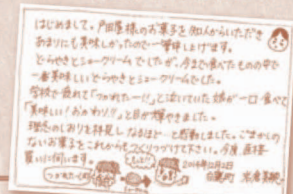 はじめまして。戸田屋様のお菓子を知人からいただき
あまりにも美味しかったので一筆申し上げます。
どらやきとシュークリームでしたが、今まで食べたものの中で
一番美味しいどらやきとシュークリームでした。
学校で疲れて「つかれた〜!!」と泣いていた娘が一口食べて
「美味しい!おかわり!!」と目が輝やきました。
理念のしおりを拝見しなるほど〜と感動しました。ごまかしの
ないお菓子をこれからもつくりつづけて下さい。今度直接
買いに伺います。
つかれた〜
2014年12月2日